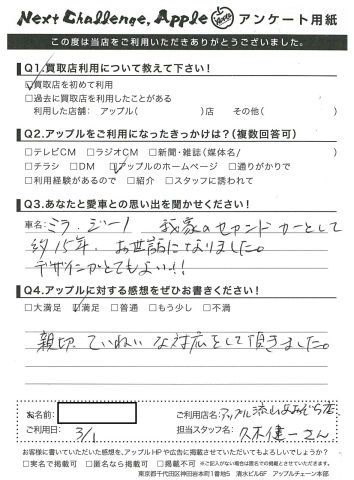 Next Challenge, Apple アンケート用紙
この度は当店をご利用いただきありがとうございました。
Q1.買取店利用について教えて下さい!
☑買取店を初めて利用
□過去に買取店を利用したことがある
利用した店舗: アップル( )店 その他( )
Q2.アップルをご利用になったきっかけは?(複数回答可)
□テレビCM □ラジオCM □新聞・雑誌(媒体名/ )
□チラシ □DM ☑アップルのホームページ □通りがかりで
□利用経験があるので □紹介 □スタッフに誘われて
Q3.あなたと愛車との思い出を聞かせください!
車名: ミラ.ジーノ 我家のセカンドカーとして
約15年、お世話になりました。
デザインがとてもよい!!
Q4.アップルに対する感想をぜひお書きください!
□大満足 ☑満足 □普通 □もう少し □不満
親切、ていねいな対応をして頂きました。
お名前: ご利用店名: アップル流山おおぞら店
ご利用日: 3/1 担当スタッフ名: 久木健一さん
お客様に書いていただいた感想を、アップルHPや広告に掲載させていただいてもよろしいでしょうか?
□実名で掲載可 □匿名なら掲載可 □掲載不可 ※ご記入がない場合は匿名での掲載とさせていただきます。
東京都千代田区神田岩本町1番地5 清水ビル6F アップルチェーン本部